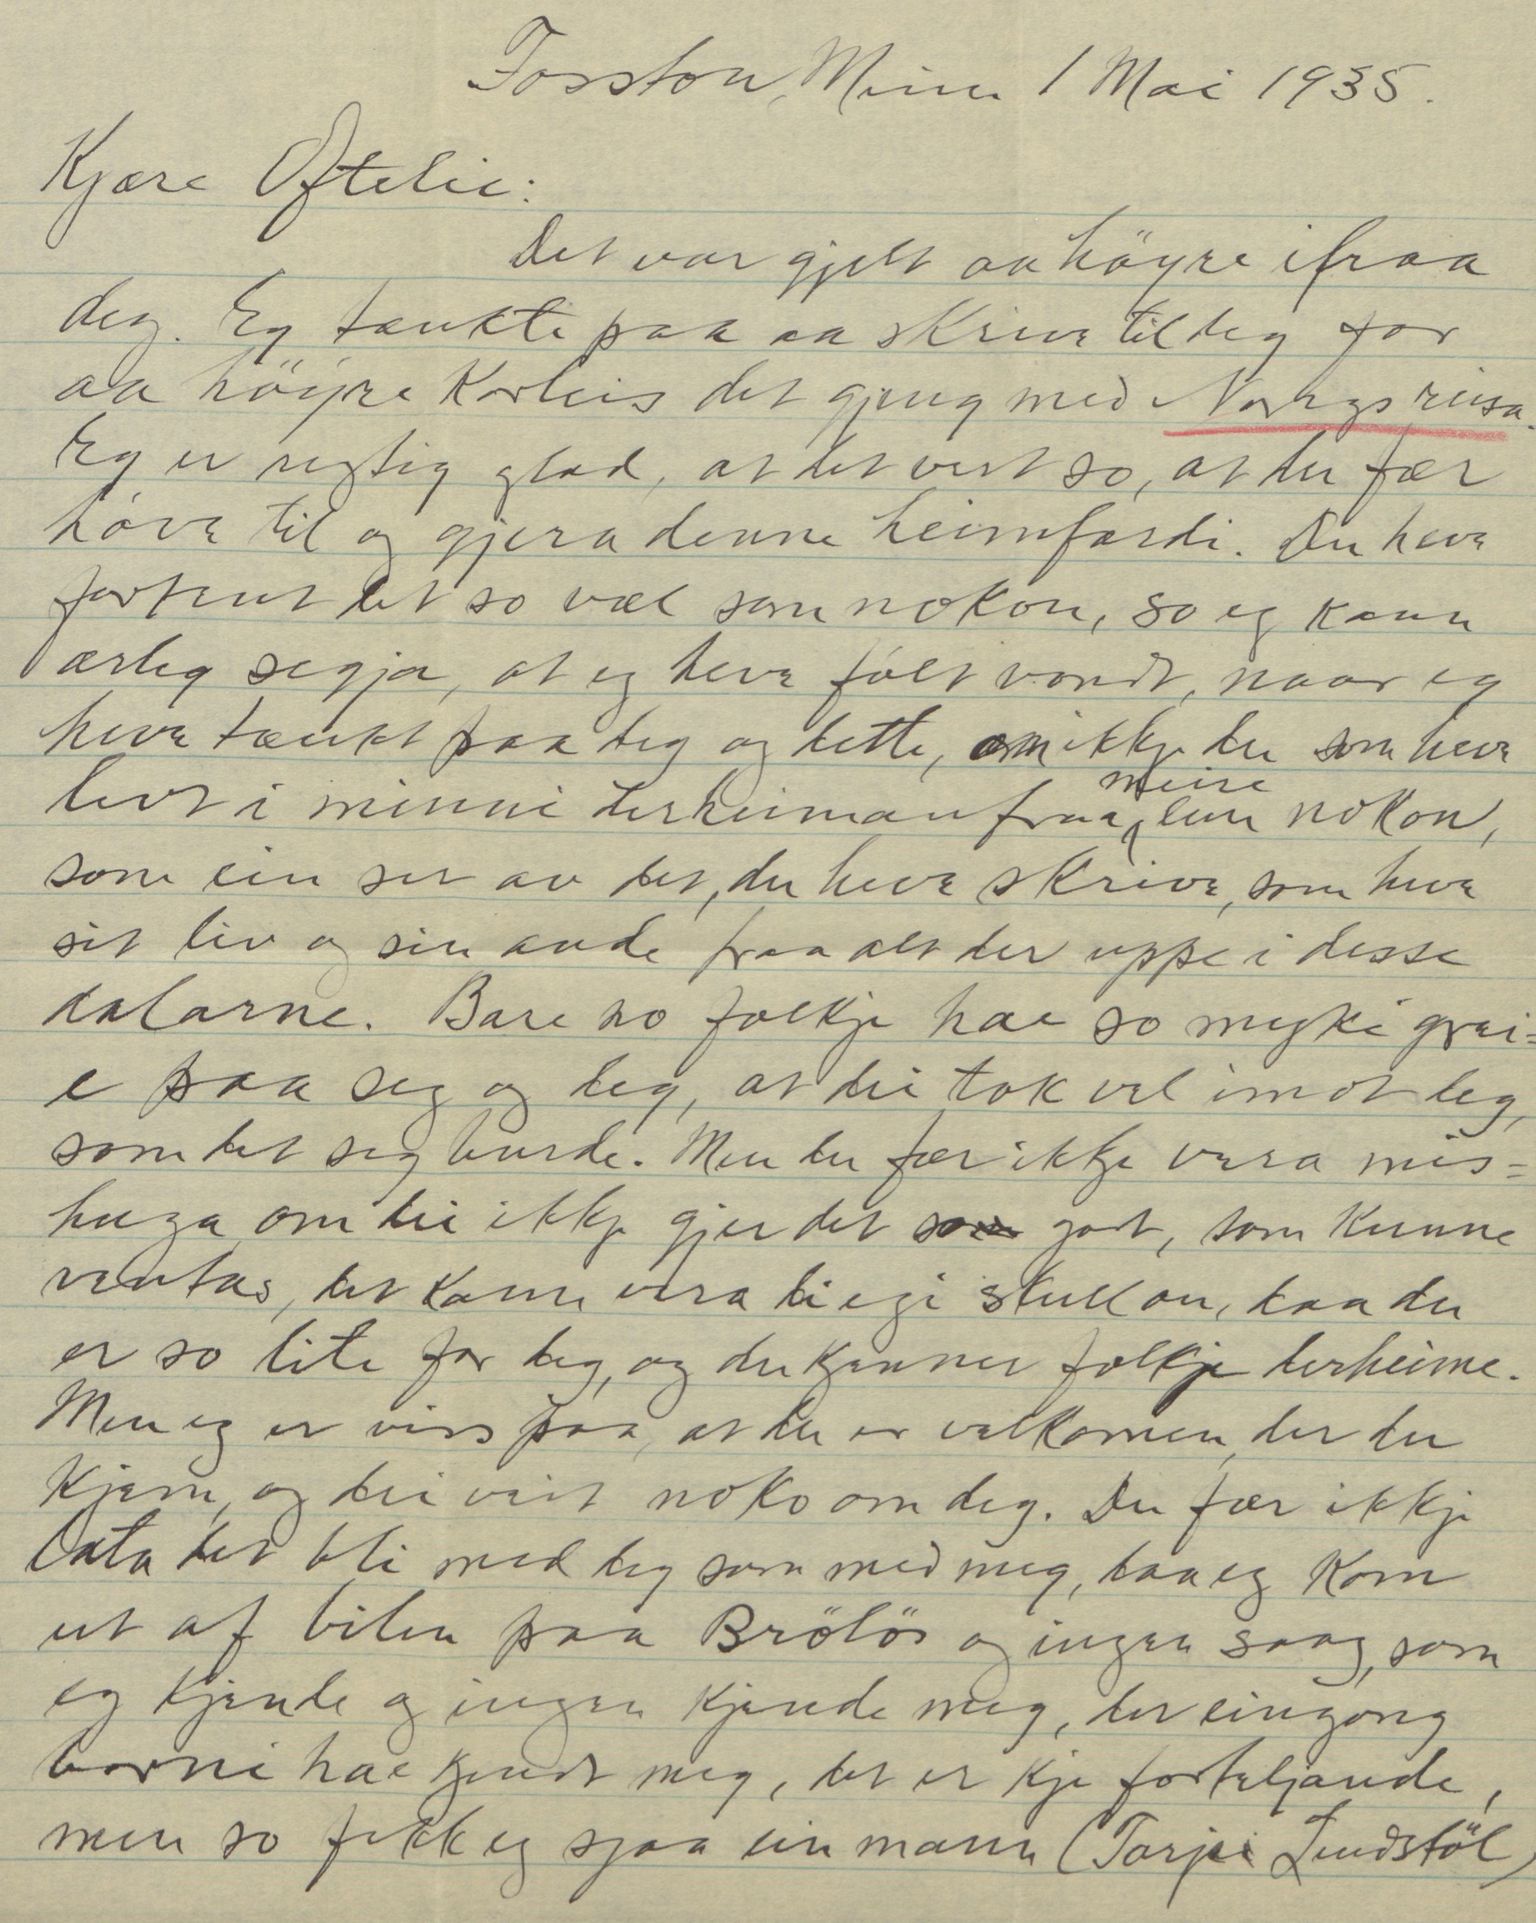 Fosston, Minn 1 Mai 1935.
Kjære Oftelie:
Det var gjelt aa höyre ifraa
deg. Eg tænkte paa aa skrive til deg for
aa höyre korleis det gjeng med Noregsreisa.
Eg er regtig glad, at det vert so, at du fær
höve til og gjera denne heimfærdi. Du heve
fortent det so væl som nokon, so eg kann
ærleg segja, at eg heve følt vondt, naar eg
heve tænkt paa deg og dette, om ikkje du som heve
levt i minni derheimanfraa meire enn nokon,
som ein ser av det, du heve skrive, som heve
sit liv og sin ande fraa alt der uppe i desse
dalarne. Bare no folkje hae so mykje grei-
e paa seg og deg, at dei tok vel imot deg,
som det seg burde. Men du fær ikkje vera mis-
huga om dei ikkje gjer det so godt, som kunne
ventas, det kann vera di egi skull au, daa du
er so lite for deg, og du kjenner folkje derheime.
Men eg er viss paa, at du er velkomen, der du
kjem, og dei veit noko om deg. Du fær ikkje
lata det bli med deg som med meg, daa eg kom
ut af bilen paa Brölös og ingen saag, som
eg kjende og ingen kjende meg, der eingong
borni hae kjendt meg, det er kje forteljande,
men so fekk eg sjaa ein mann (Tarjei Lundstöl)